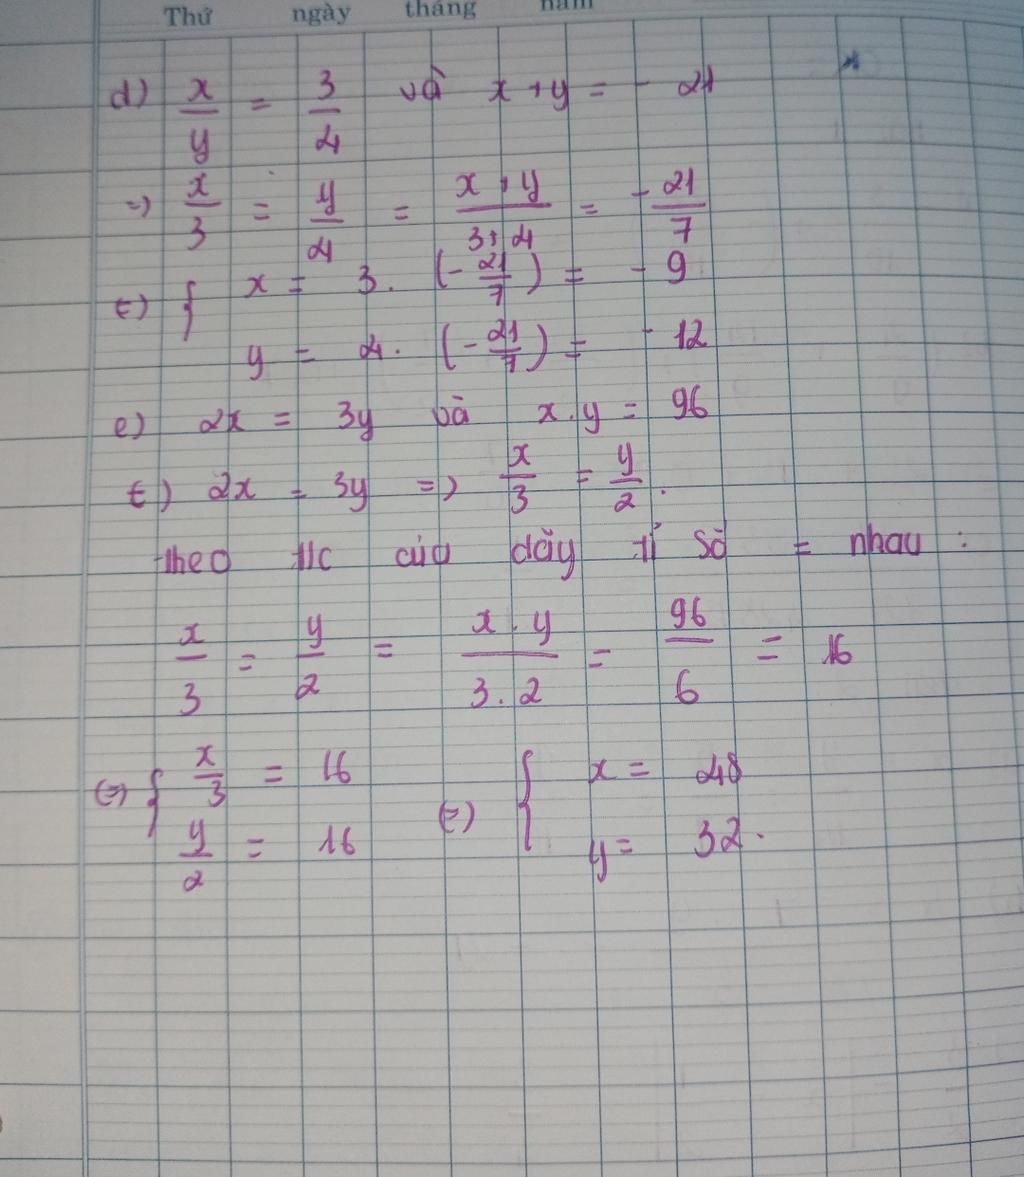 Thứ ngày tháng năm
d) x/y = 3/4 và x + y = - 21
=) x/3 = y/4 = x + y/3+4 = - 21/7
(=) { x = 3. (- 21/7) = - 9
y = 4. (- 21/7) = - 12
e) 2x = 3y và x.y = 96
(=) 2x = 3y =) x/3 = y/2.
theo t/c của dãy tỉ số = nhau :
x/3 = y/2 = x.y/3.2 = 96/6 = 16
(=) { x/3 = 16 (=) { x = 48
y/2 = 16 y = 32.